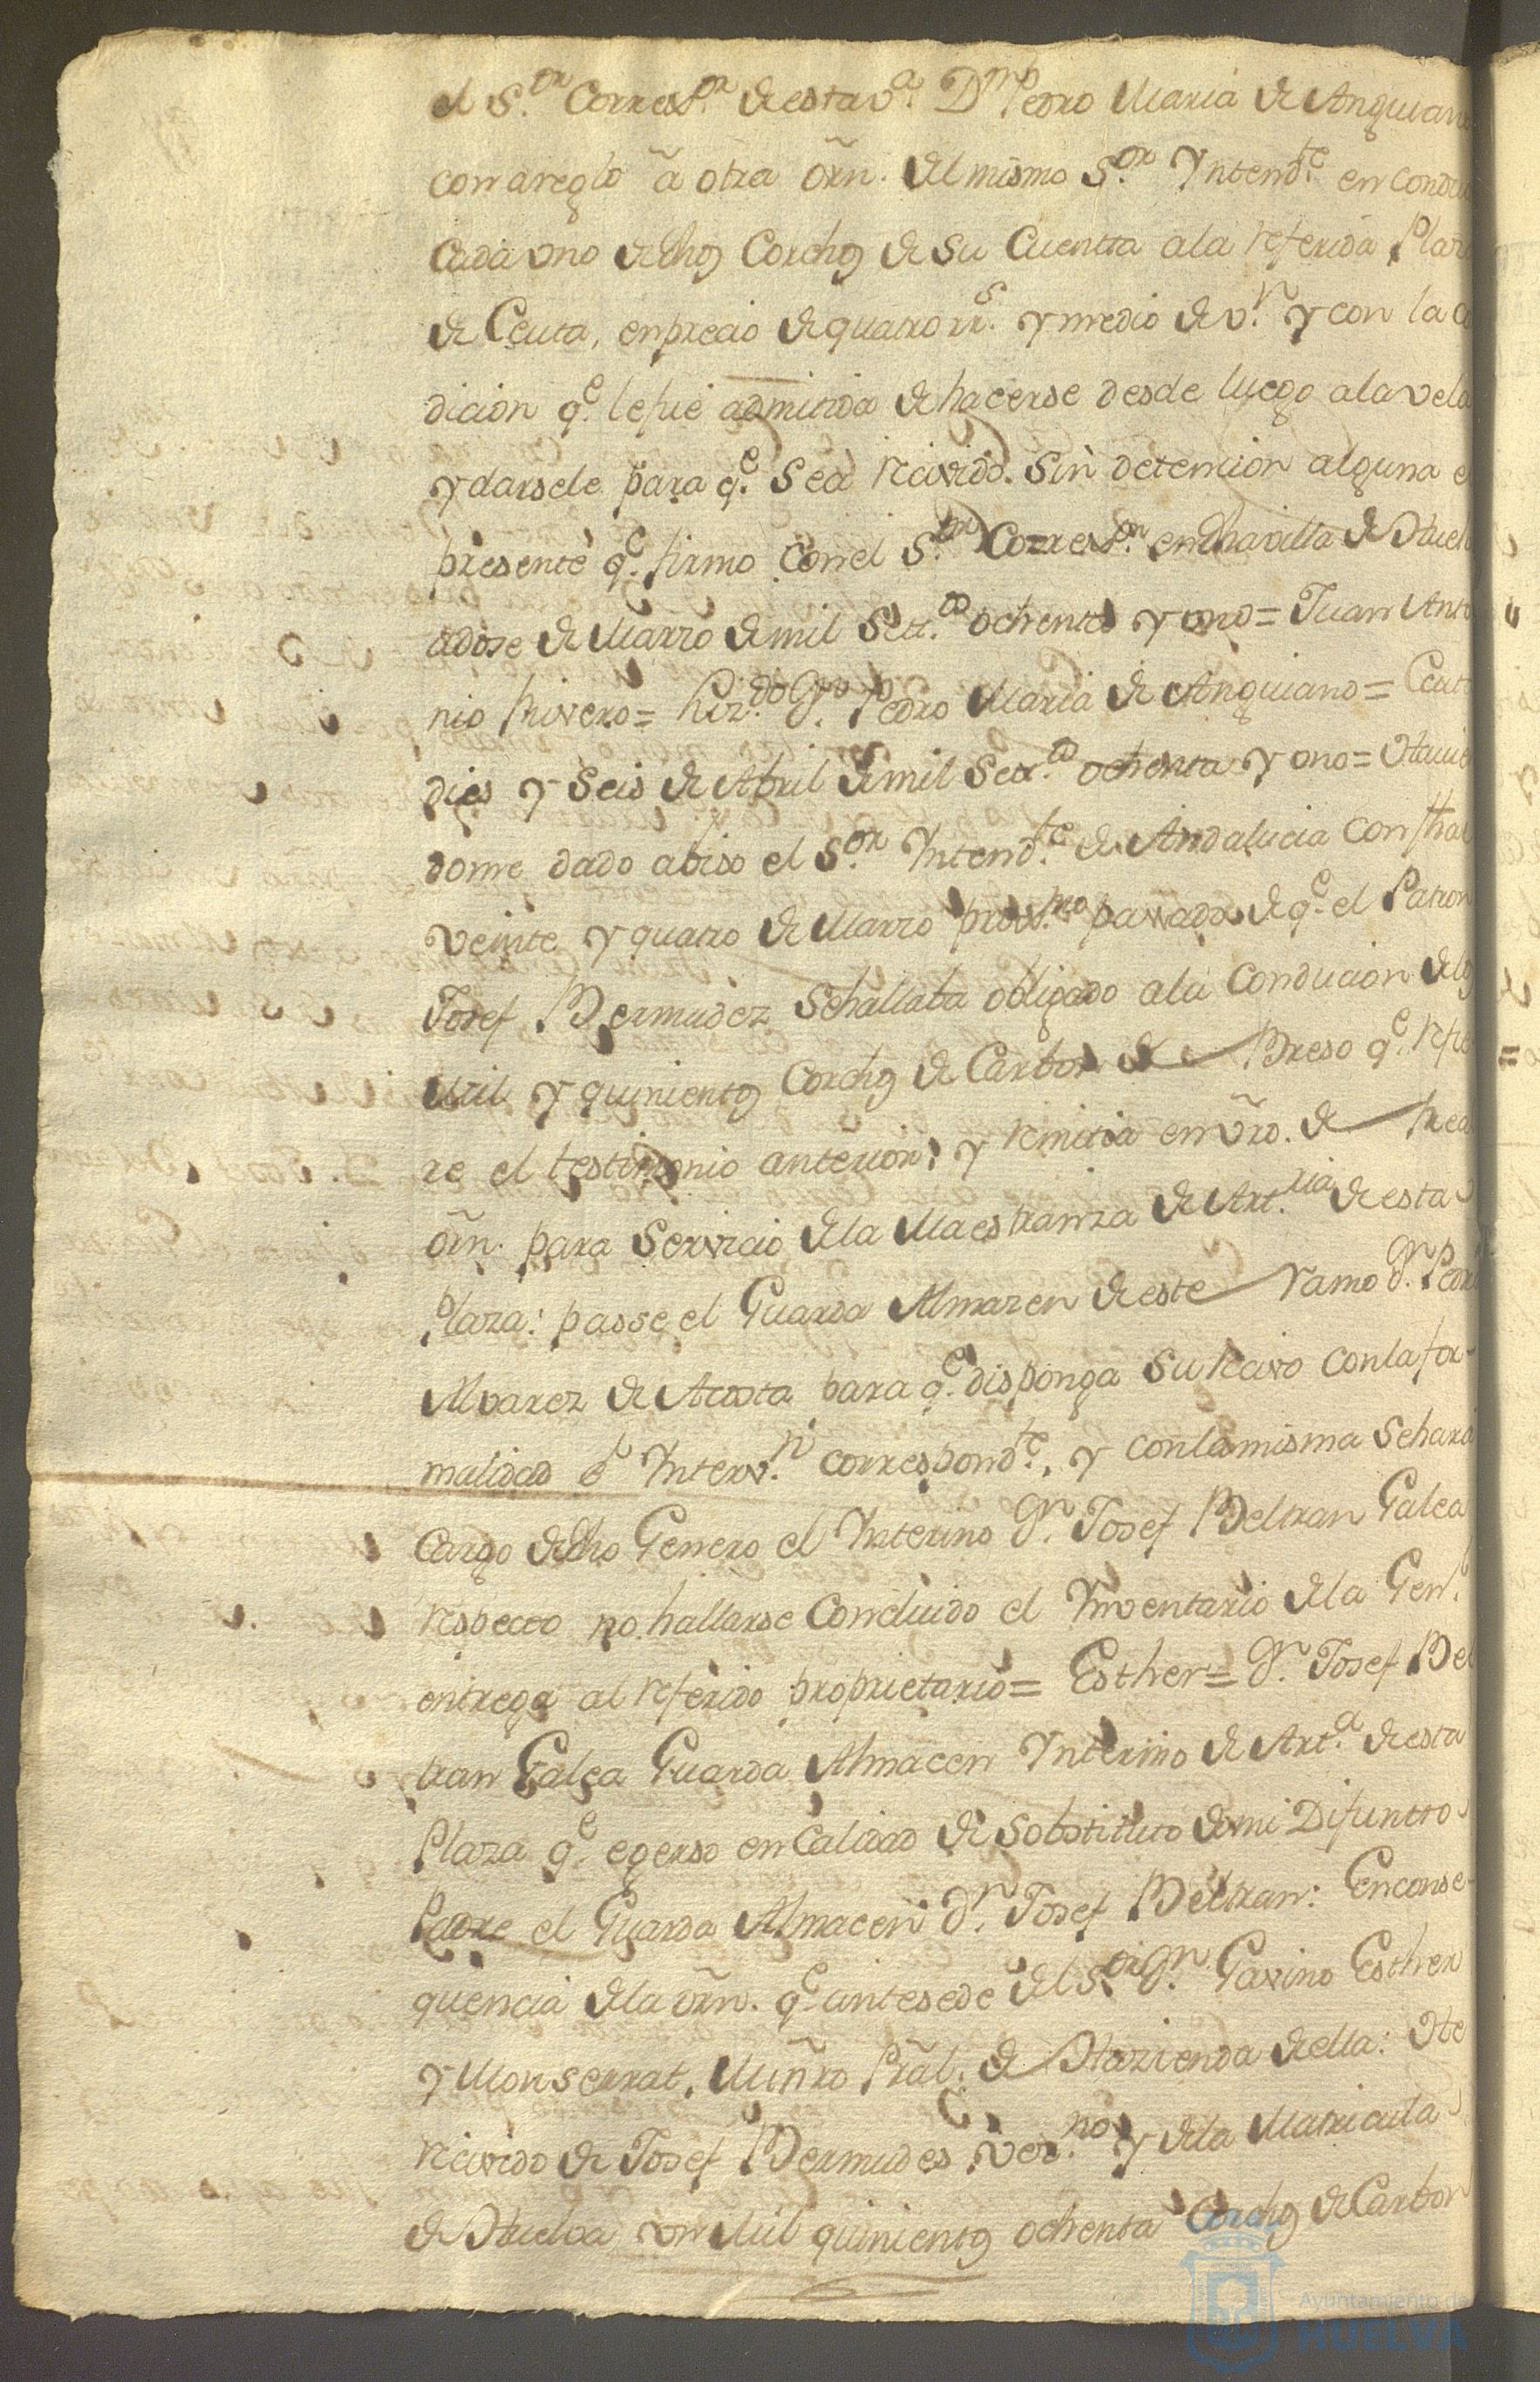 el S.or Correx.or de esta v.a D.n Pedro Maria de Anguian
con areglo â otra õrn. del mismo S.or Yntend.te en condu
cada vno de dhos Corchos de su Cuenta ala referida Plaz
de Ceuta, en precio de quatro rr.s y medio de v.n y con la co
dicion q.e le fué admitida de hacerse desde luego ala vela
y darsele para q.e sea recivido sin detencion alguna e
presente q.e firmo con el S.or Correx.or en dha villa de Huel
a dose de Marzo de mil Sett.os ochenta y vno = Juan Anto
nio Rivero = Liz.do D.n Pedro Maria de Anguiano = Ceut
dies y seis de Abril de mil Set.os ochenta y vno = Havien
dome dado abiso el S.or Yntend.te de Andalucia con fha
veinte y quatro de Marzo prox.mo passado de q.e el Patron
Josef Bermudez se hallaba obligado ala Conducion de los
Mil y quinientos Corchos de Carbon de Breso q.e refie
re el testimonio anterior, y remitia en vro. de Real
õrn. para Servicio de la Maestranza de Art.ria de esta
Plaza: passe el Guarda Almazen de este ramo d.n Pedro
Alvarez de Acosta para q.e disponga su recivo con la for-
malidad é Interv.n correspond.te, y con la misma se hará
cargo de dho Genero el Ynterino D.n Josef Beltran Galea
respecto no hallarse Concluido el Ynventario de la Gen.l
entrega al referido proprietario = Esther = D.n Josef Bel
tran Galea Guarda Almacen Ynterino de Art.a de esta
Plaza q.e egerso en Calidad de Sobstituto de mi Difuncto
Padre el Guarda Almacen d.n Josef Beltran: En conse-
quencia de la õrn. q.e antesede del S.or D.n Gavino Esther
y Monserrat, Miñro Prãl. de Hazienda de ella: He
recivido de Josef Bermudes, Vez.no y de la Matricula
de Huelva vn Mil quinientos ochenta Corchos de Carbon
Ayuntamiento de
HUELVA